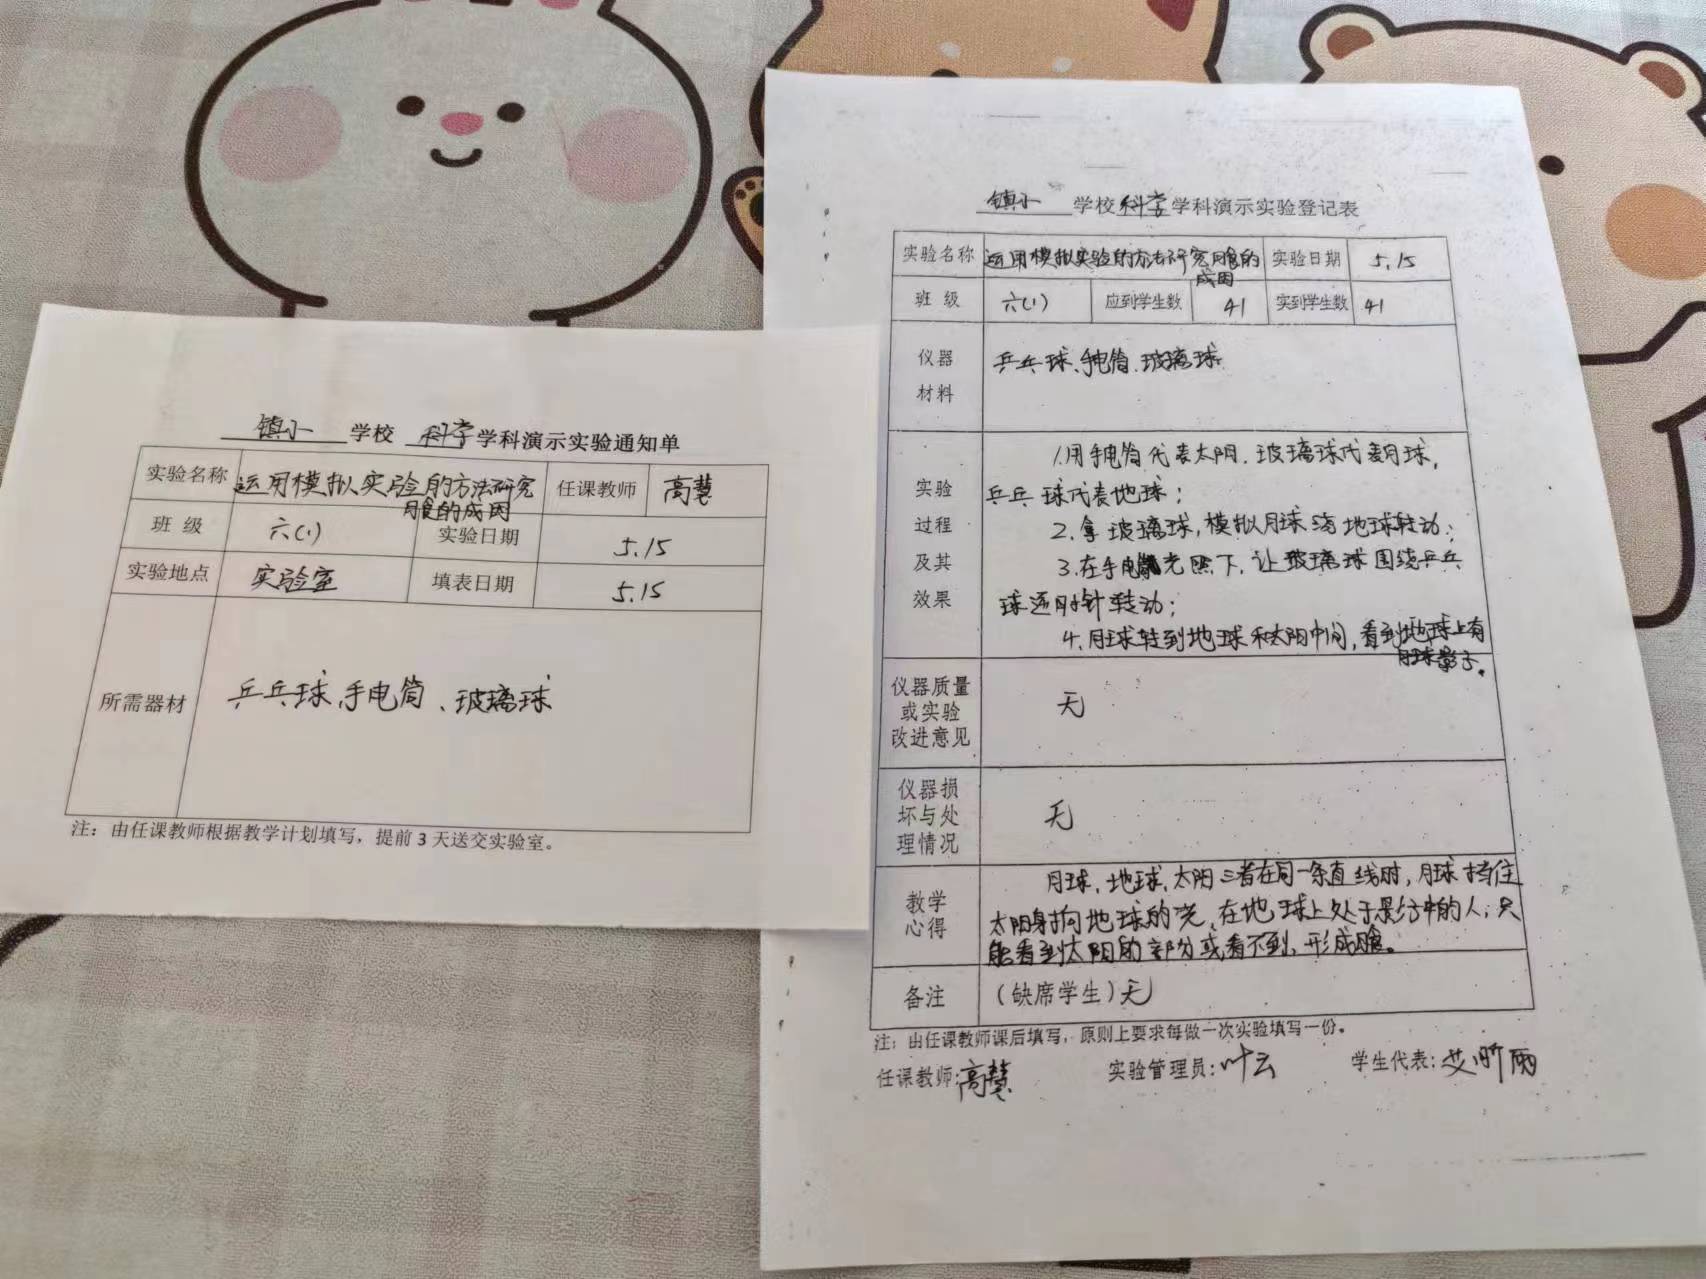 镇小 学校 科学学科演示实验通知单
实验名称 运用模拟实验的方法研究月食的成因 任课教师 高慧
班 级 六(1) 实验日期 5.15
实验地点 实验室 填表日期 5.15
所需器材 乒乓球、手电筒、玻璃球
注：由任课教师根据教学计划填写，提前3天送交实验室。
镇小 学校 科学 学科演示实验登记表
实验名称 运用模拟实验的方法研究月食的成因 实验日期 5.15
班 级 六(1) 应到学生数 41 实到学生数 41
仪器材料 乒乓球、手电筒、玻璃球
实验过程及其效果
1.用手电筒代表太阳、玻璃球代表月球，
乒乓球代表地球；
2.拿玻璃球，模拟月球 地球转动；
3.在手电 光照下，让玻璃球围绕乒乓
球逆时针转动；
4.月球转到地球和太阳中间，看到地球上有
月球影子。
仪器质量或实验改进意见 无
仪器损坏与处理情况 无
教学心得
月球、地球、太阳三者在同一条直线时，月球挡住
太阳射向地球的光，在地球上处于影子中的人，只
能看到太阳的 部分或看不到，形成 食。
备注 (缺席学生)无
注：由任课教师课后填写，原则上要求每做一次实验填写一份。
任课教师:高慧 实验管理员:叶云 学生代表:艾昕雨